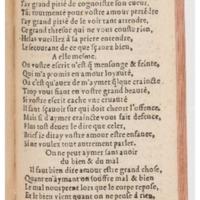 J'ay grand pitié de cognoistre son cueur,
Tu tourmenté pour vostre amour peut estre
J'ay grand pitié de le voir tant attendre,
Ce grand thresor qui ne vous couste rien,
Helas vueillez à sa priere entendre,
Le secourant de ce que sçauez bien,
A elle mesme.
Ou vostre escrit n'est que mensonge & feinte,
Qui m'a promis en amour loyauté,
Ou c'est qu'auez de m'aymer quelque crainte
Trop vous fiant en vostre grand beauté,
Si vostre escrit cache vne cruauté
Il faut sçauoir sur qui doit cheoir l'offence,
Mais si d'aymer crainte vous fait defence,
Plus tost deuez le dire que celer,
Brief si dira vostre amour estre enfance,
Si ne voulez tout autrement parler.
On ne peut aymer sans auoir
du bien & du mal
Il faut bien dire amour estre grand chose,
Quant en aymant on souffre mal & bien
Le mal nous perd lors que le corps repose,
Et le bien vient quant on ne pense à rien,